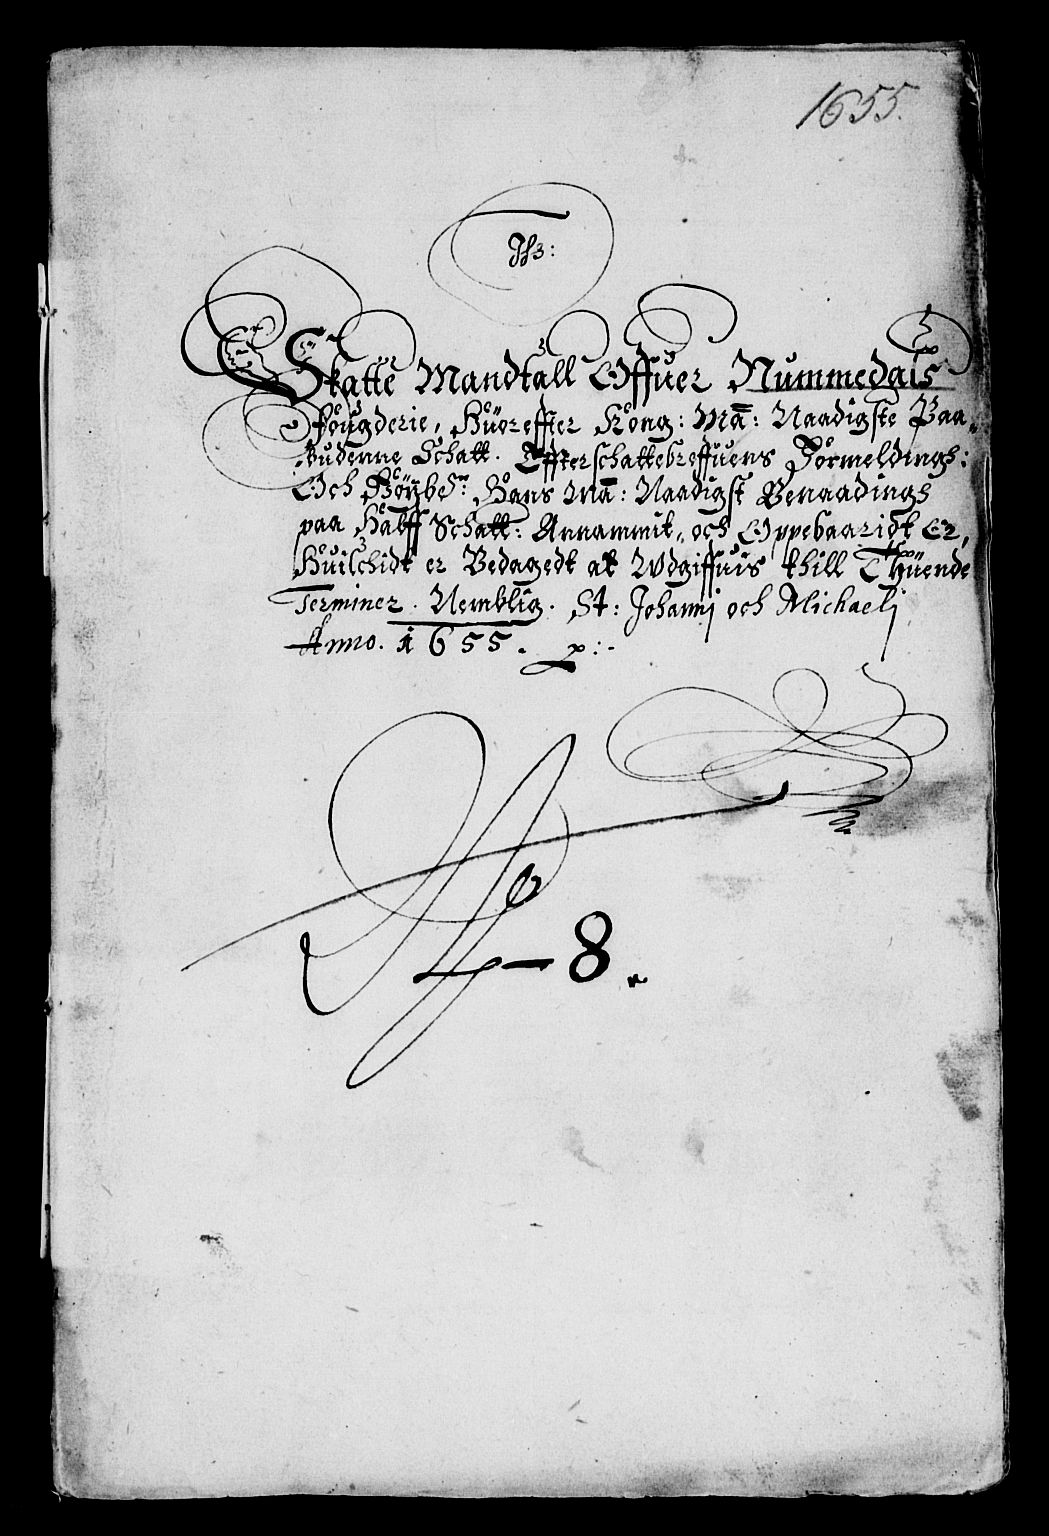 1655.
Jhs:
Skatte Mandtall Offuer Nummedals
Fougderie, Huoreffter Kong: Ma: Naadigste Paa„
budenne Schatt. Effterschattebreffuens Formeldings:
Och Höybe.r Hans Ma: Naadigst Benaadings
paa Halff Schatt: Annammit„ och Oppebaaridt Er,
Huilchidt er Bedagedt at Udgiffuis thill Thuende
Terminer. Nemblig. St: Johannj och Michaelj
Anno. 1655.
8.